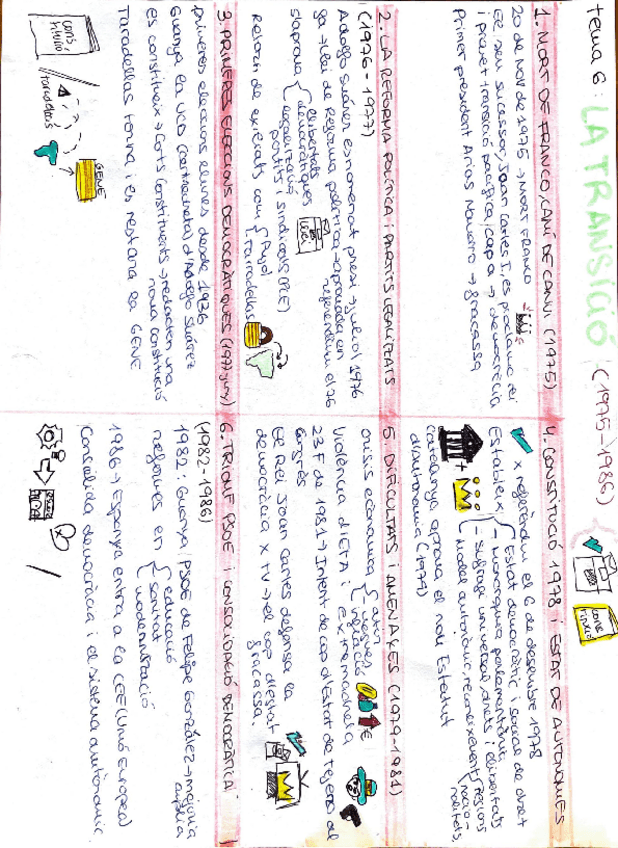 tema 6: LA TRANSICIÓ (1975-1986)
1. MORT DE FRANCO, CAMÍ DE CANVI (1975)
20 de nov de 1975 → MORT FRANCO
El seu successor, Joan Carles I, es proclama rei
i promet transició pacífica cap a → democràcia
Primer president Arias Navarro → fracassa
2. LA REFORMA POLÍTICA I PARTITS LEGALITZATS
(1976-1977)
Adolfo Suárez es nomenat presi → juliol 1976
→ Llei de Reforma política → aprovada en
referèndum el 76
s'aprova llibertats
democràtiques
legalització
partits i sindicats (PCE)
LLEI
Retorn de exiliats com Pujol
Tarradellas
3. PRIMERES ELECCIONS DEMOCRÀTIQUES (1977 juny)
primeres eleccions lliures desde 1936
Guanya la UCD (centredreta) d'Adolfo Suárez
es constitueix → Corts constituents → redacten una
nova constitució
Taradellas torna i es restaura la GENE
cons
titució
taradellas
GENE
4. CONSTITUCIÓ 1978 I ESTAT DE AUTONOMIES
x referèndum el 6 de desembre 1978
Estableix Estat democràtic i social de dret
- Monarquia parlamentària
- Sufragi universal, drets i llibertats
- Model autonòmic, reconeixent regions
nacio-
nalitats
Catalunya aprova el nou Estatut
d'autonomia (1979)
cons
titució
5. DIFICULTATS I AMENACES (1979-1981)
crisis econòmica atur
inflació
Violència d'ETA i ex
23 F de 1981 → Intent de cop d'Estat de Tejero al
congrés
El Rei Joan Carles defensa la
democràcia x TV → el cop d'Estat
fracassa.
6. TRIOMF PSOE I CONSOLIDACIÓ DEMOCRÀTICA
(1982-1986)
1982: Guanya PSOE de Felipe González → majoria
amplia
reformes en educació
sanitat
modernització
1986 → Espanya entra a la CEE (Unió Europea)
Consolida democràcia i el sistema autonòmic.